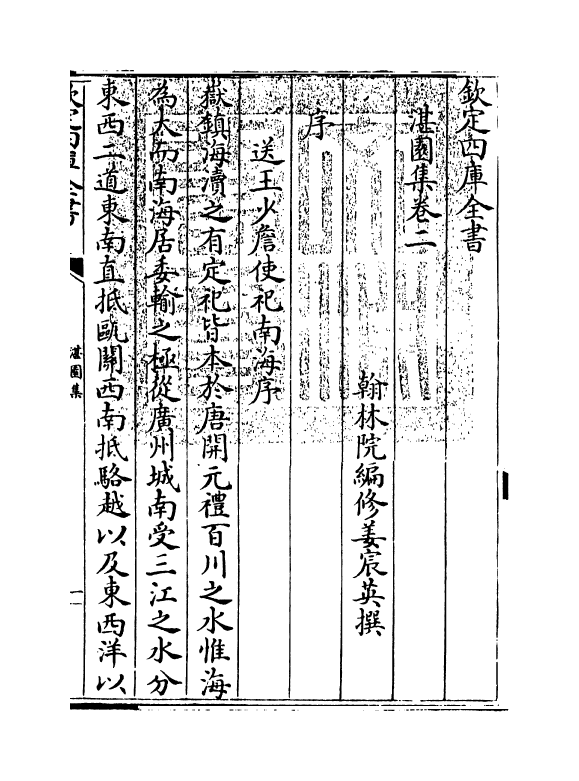 欽定四庫全書
湛園集卷二
翰林院編修姜宸英撰
序
送王少詹使祀南海序
嶽鎮海瀆之有定祀皆本於唐開元禮百川之水惟海
為大而南海居委輸之極從廣州城南受三江之水分
東西二道東南直抵甌闗西南抵駱越以及東西洋以
欽定四庫全書
湛園集
一